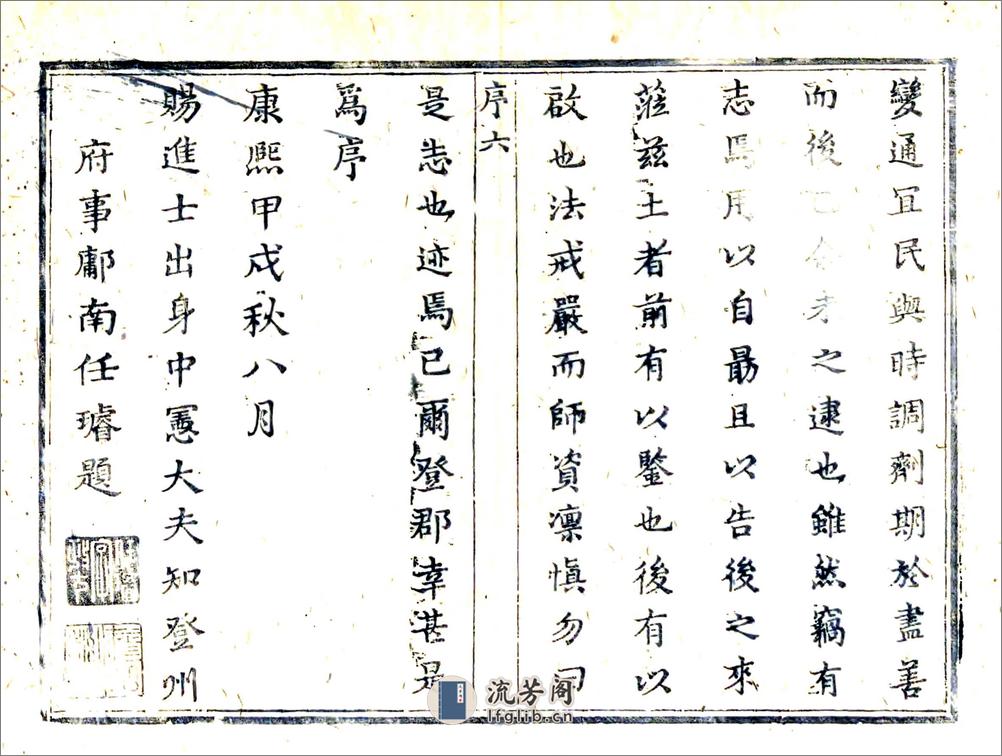 變通宜民與時調劑期於盡善
而後已今未之逮也雖然竊有
志焉用以自勗且以告後之來
蒞茲土者前有以鑒也後有以
啟也法戒嚴而師資凛慎勿曰
序六
是志也迹焉已爾登郡幸甚是
爲序
康熙甲戌秋八月
賜進士出身中憲大夫知登州
府事鄘南任璿題
流芳阁
lfglib.cn